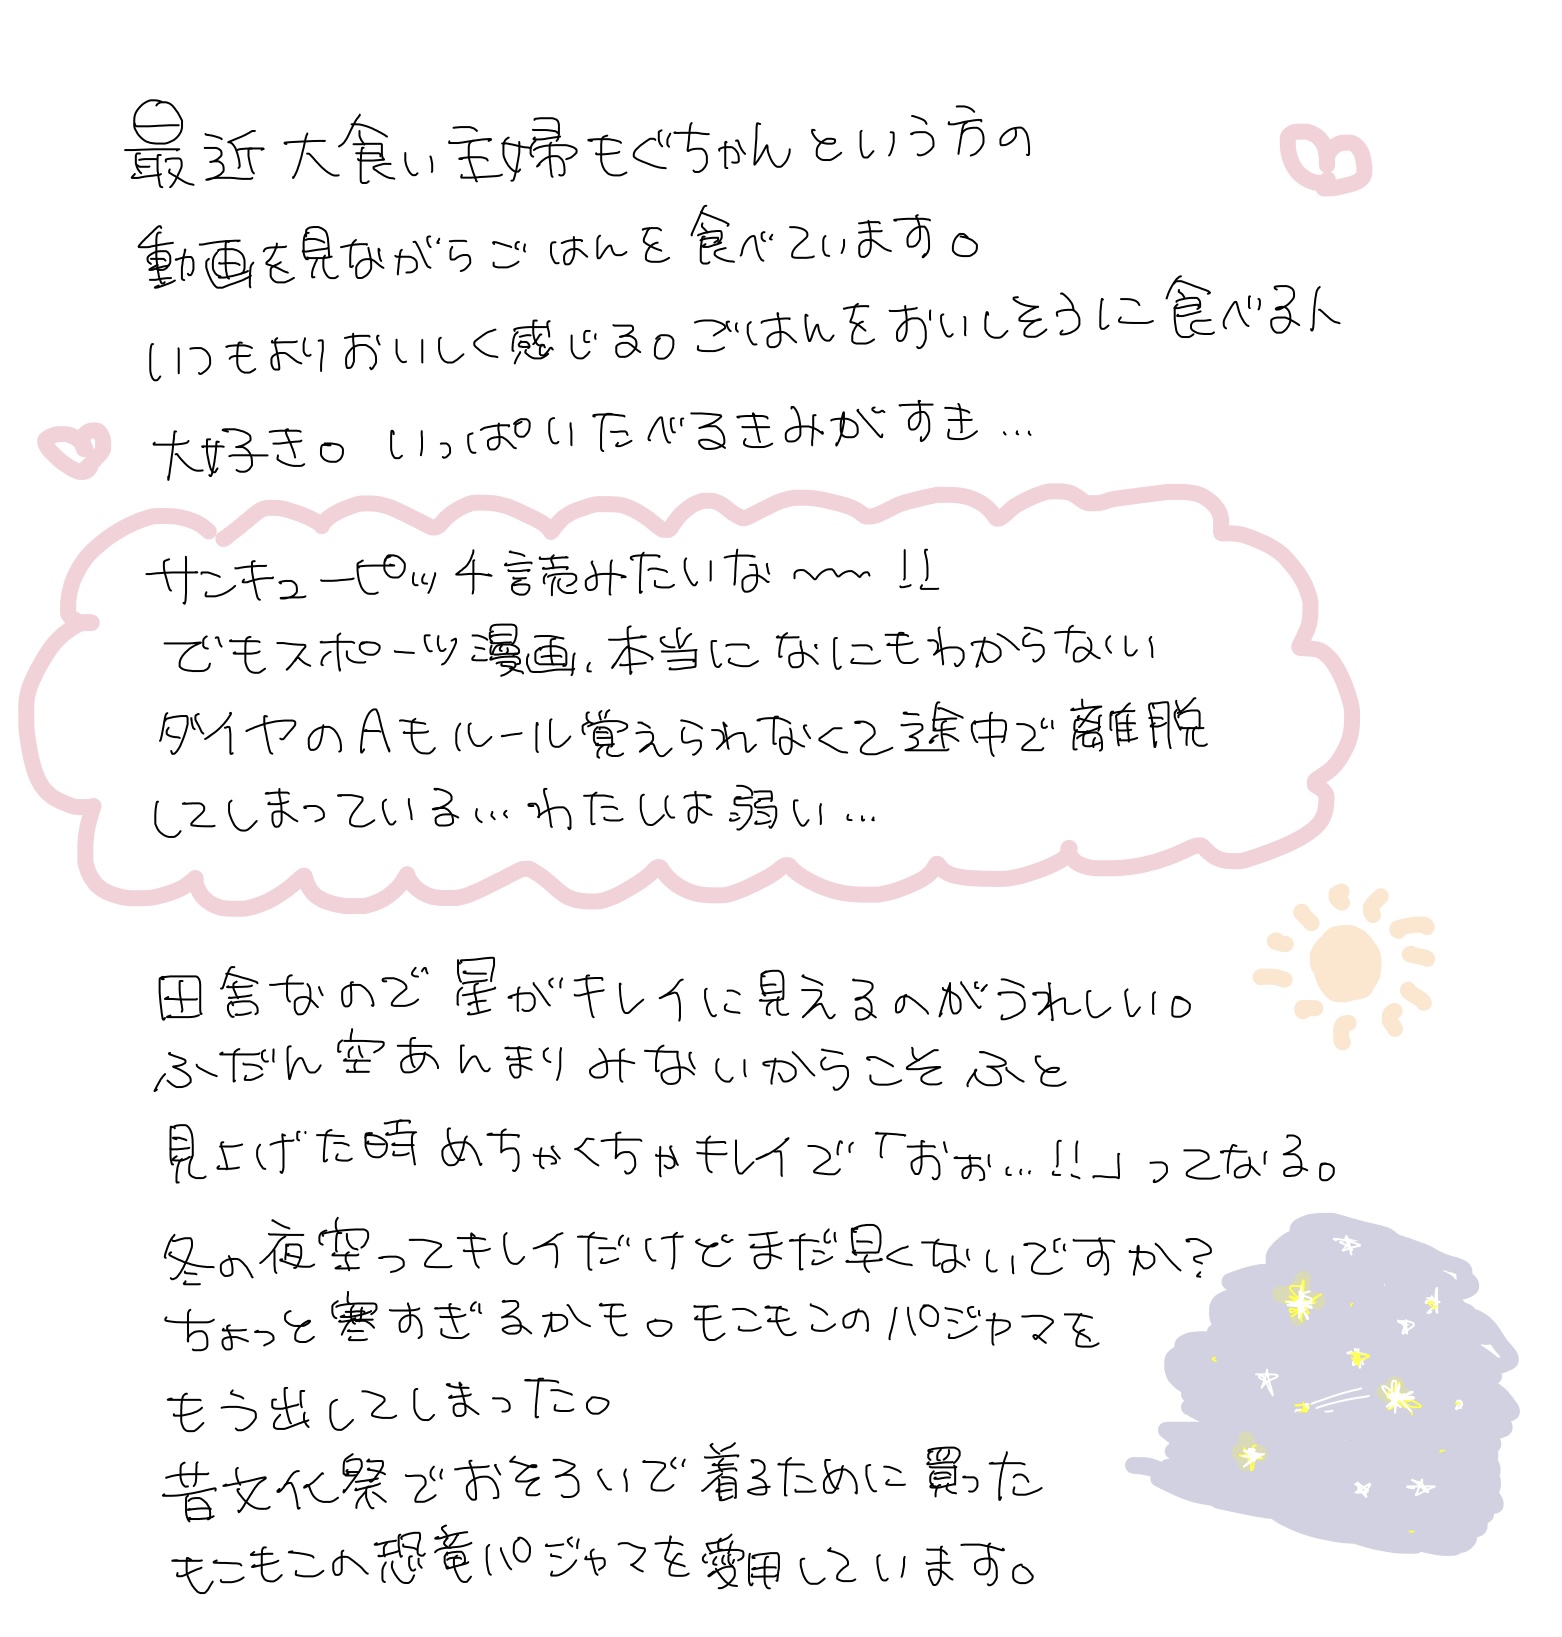 最近大食い主婦もぐちゃんという方の
動画を見ながらごはんを食べています。
いつもよりおいしく感じる。ごはんをおいしそうに食べる人
大好き。いっぱいたべるきみがすき…
サンキューピッチ読みたいな〜〜!!
でもスポーツ漫画、本当になにもわからない
ダイヤのAもルール覚えられなくて途中で離脱
してしまっている…わたしは弱い…
田舎なので星がキレイに見えるのがうれしい。
ふだん空あんまりみないからこそふと
見上げた時めちゃくちゃキレイで「おぉ…!!」ってなる。
冬の夜空ってキレイだけどまだ早くないですか?
ちょっと寒すぎるかも。モコモコのパジャマを
もう出してしまった。
昔文化祭でおそろいで着るために買った
もこもこの恐竜パジャマを愛用しています。